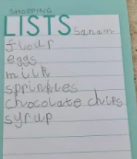 SHOPPING
LISTS
flour
eggs
milk
sprinkles
chocolate chips
syrup